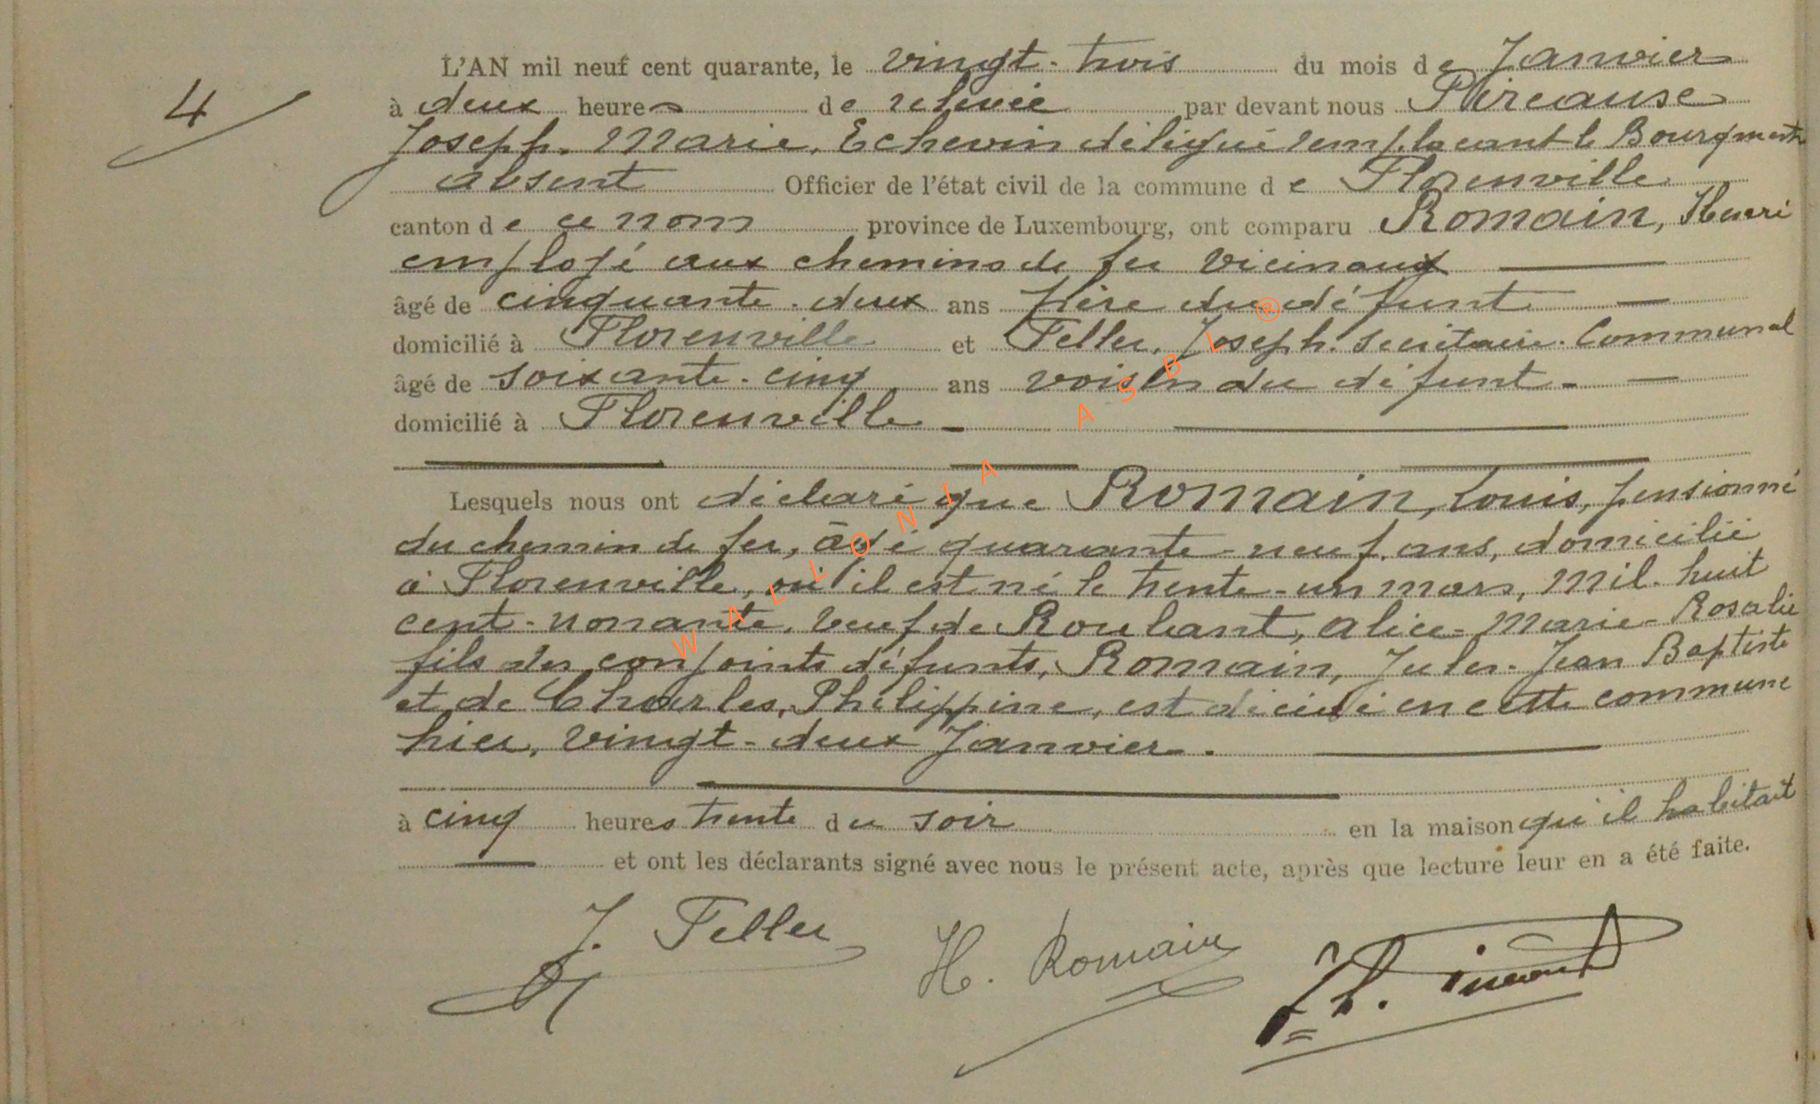 4
L'AN mil neuf cent quarante, le vingt-trois du mois de Janvier
à deux heures de relevée par devant nous
Joseph. Marie, Echevin délégué remplacant le Bourgmestre
absent Officier de l'état civil de la commune de Florenville
canton de ce nom province de Luxembourg, ont comparu Romain, Henri
employé aux chemins de fer vicinaux
âgé de cinquante-deux ans frère du défunt
domicilié à Florenville et Feller, Joseph. Secrétaire. Communal
âgé de soixante-cinq ans voisin du défunt
domicilié à Florenville
Lesquels nous ont déclaré que Romain, Louis, pensionné
du chemin de fer, âgé quarante-neuf ans, domicilié
à Florenville, où il est né le trente-un mars, mil-huit
cent-nonante, veuf de Roulant, Alice-Marie-Rosalie
fils des conjoints défunts, Romain, Jules-Jean Baptiste
et de Charles, Philippine, est décédé en cette commune
hier, vingt-deux Janvier.
à cinq heures trente du soir en la maison qu'il habitait
et ont les déclarants signé avec nous le présent acte, après que lecture leur en a été faite.
J. Feller H. Romain
WALLONIA ASBL ®